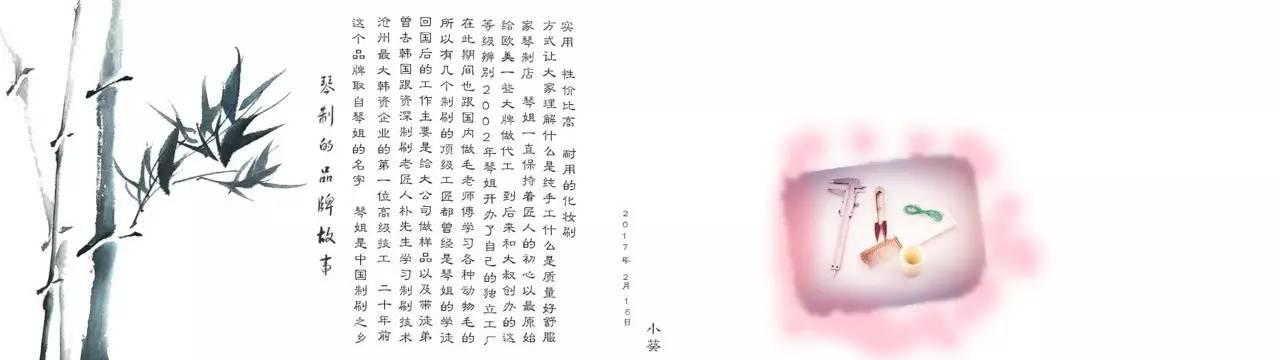 琴制的品牌故事
这个品牌取自琴姐的名字 琴姐是中国制刷之乡
沧州最大韩资企业的第一位高级技工 二十年前
曾去韩国跟资深制刷老匠人朴先生学习制刷技术
回国后的工作主要是给大公司做样品以及带徒弟
所以有几个制刷的顶级工匠都曾经是琴姐的学徒
在此期间也跟国内做毛老师傅学习各种动物毛的
等级辨别2002年琴姐开办了自己的独立工厂
给欧美一些大牌做代工 到后来和大叔创办的这
家琴制店 琴姐一直保持着匠人的初心以最原始
方式让大家理解什么是纯手工什么是质量好舒服
实用 性价比高 耐用的化妆刷
2017年 2月 16日
小葵